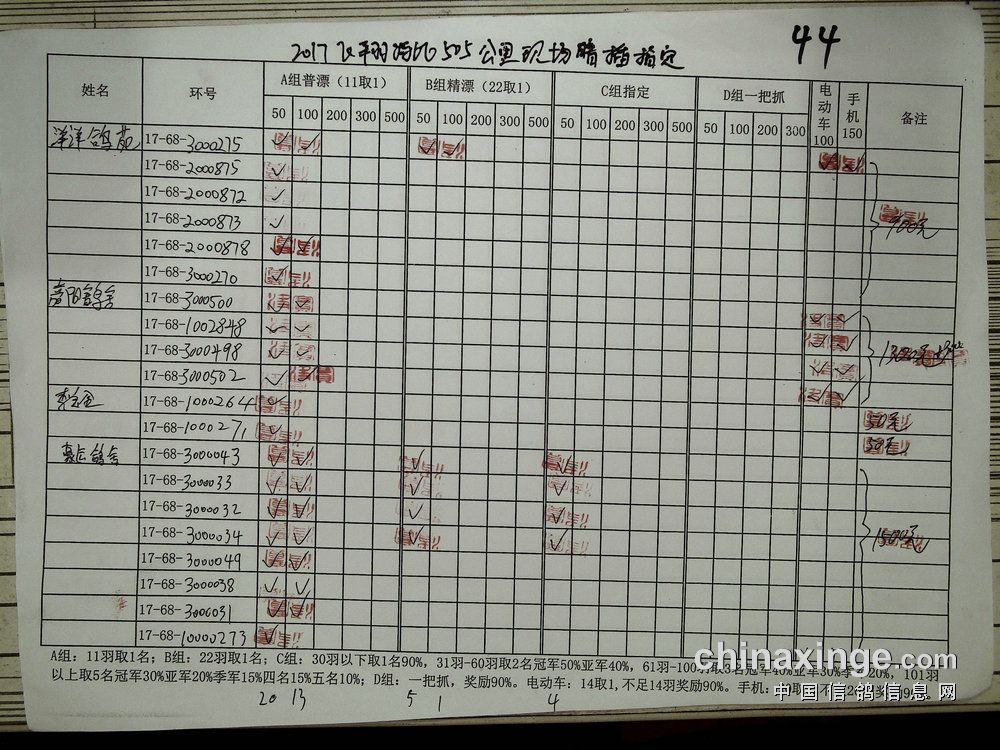 44
2017 505公里现场暗插指定
姓名 环号 A组普漂（11取1） B组精漂（22取1） C组指定 D组一把抓 电动车100 手机150 备注
50 100 200 300 500 50 100 200 300 500 50 100 200 300 500 50 100 200 300
洋洋鸽苑 17-68-3000275 ✓ ✓ ✓ ✓ ✓ ✓
17-68-2000875 ✓
17-68-2000872 ✓
17-68-2000873 ✓ 900元
17-68-2000878 ✓ ✓
17-68-3000270 ✓
17-68-3000500 ✓ ✓
17-68-1002848 ✓ ✓ ✓ ✓
17-68-3000498 ✓ ✓ ✓ ✓
17-68-3000502 ✓ ✓ ✓ ✓
17-68-1000264 ✓ ✓ ✓ 50元
17-68-1000271 ✓ 50元
17-68-3000043 ✓ ✓ ✓ ✓
17-68-3000033 ✓ ✓ ✓ ✓
17-68-3000032 ✓ ✓ ✓ ✓
17-68-3000034 ✓ ✓ ✓ ✓ 1500元
17-68-3000049 ✓ ✓
17-68-3000038 ✓ ✓
17-68-3000031 ✓ ✓
17-68-10000273 ✓
A组：11羽取1名；B组：22羽取1名；C组：30羽以下取1名90%，31羽-60羽取2名冠军50%亚军40%，61羽-100羽取3名冠军40%亚军30%季军20%，101羽
以上取5名冠军30%亚军20%季军15%四名15%五名10%；D组：一把抓，奖励90%。电动车：14取1,不足14羽奖励90%。手机：
20 13 5 1 4
chinaxinge.com
中国信鸽信息网